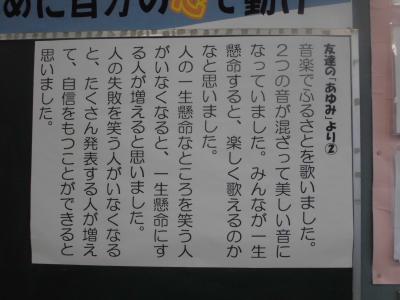 めに自分の志で動け
友達の「あゆみ」より②
音楽でふるさとを歌いました。
2つの音が混ざって美しい音に
なっていました。みんなが一生
懸命すると、楽しく歌えるのか
なと思いました。
人の一生懸命なところを笑う人
がいなくなると、一生懸命にす
る人が増えると思いました。
人の失敗を笑う人がいなくなる
と、たくさん発表する人が増え
て、自信をもつことができると
思いました。